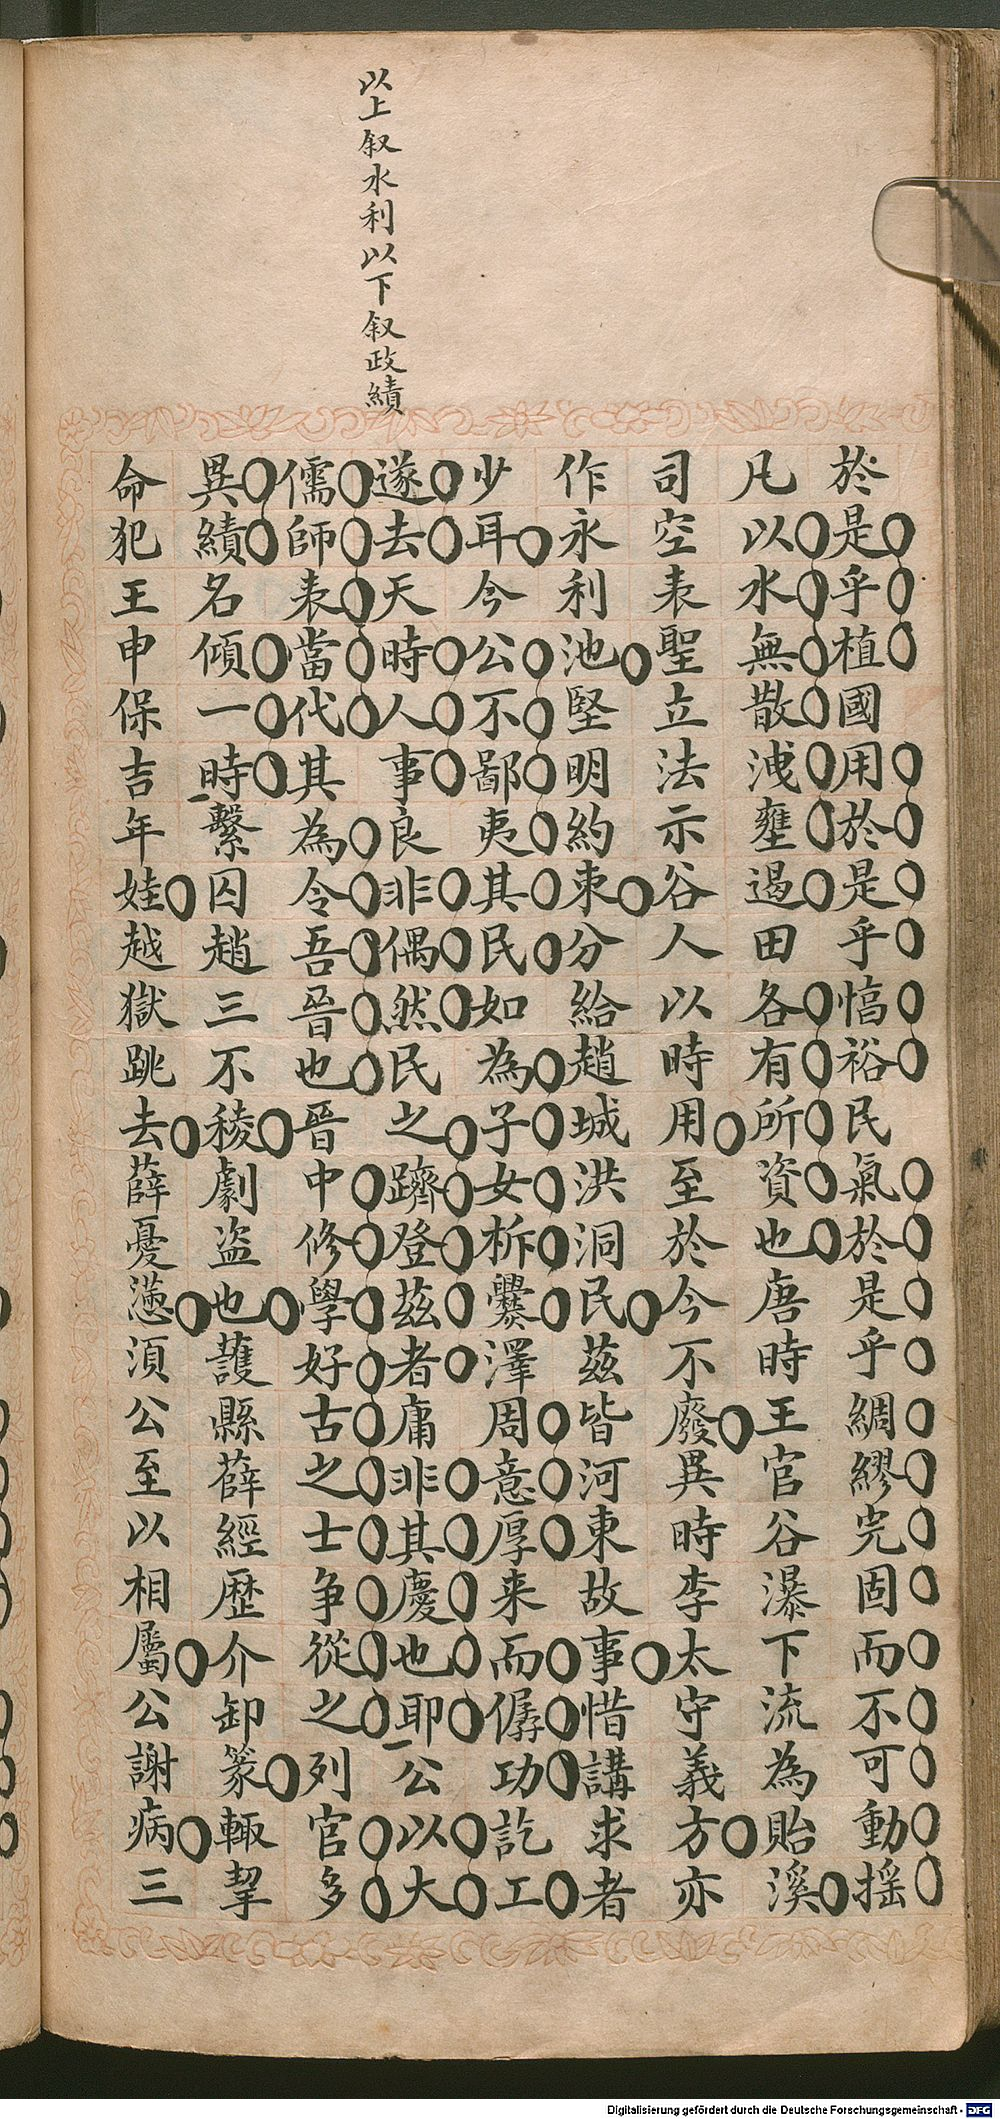 以上叙水利以下叙政績
於是乎植國用於是乎愊裕民氣於是乎綢繆完固而不可動搖
凡以水無散洩壅遏田各有所資也唐時王官谷瀑下流為貽溪
司空表聖立法示谷人以時用至於今不廢異時李太守義方亦
作永利池堅明約束分給趙城洪洞民茲皆河東故事惜講求者
少耳今公不鄙夷其民如為子女柝爨澤周意厚来而僝功訖工
遂去天時人事良非偶然民之躋登茲者庸非其慶也耶公以大
儒師表當代其為令吾晉也晉中修學好古之士争從之列官多
異績名傾一時繫囚趙三不稜劇盜也護縣薛經歷介卸篆輙挈
命犯王申保吉年娃越獄跳去薛憂懣湏公至以相屬公謝病三
Digitalisierung gefördert durch die Deutsche Forschungsgemeinschaft - DFG